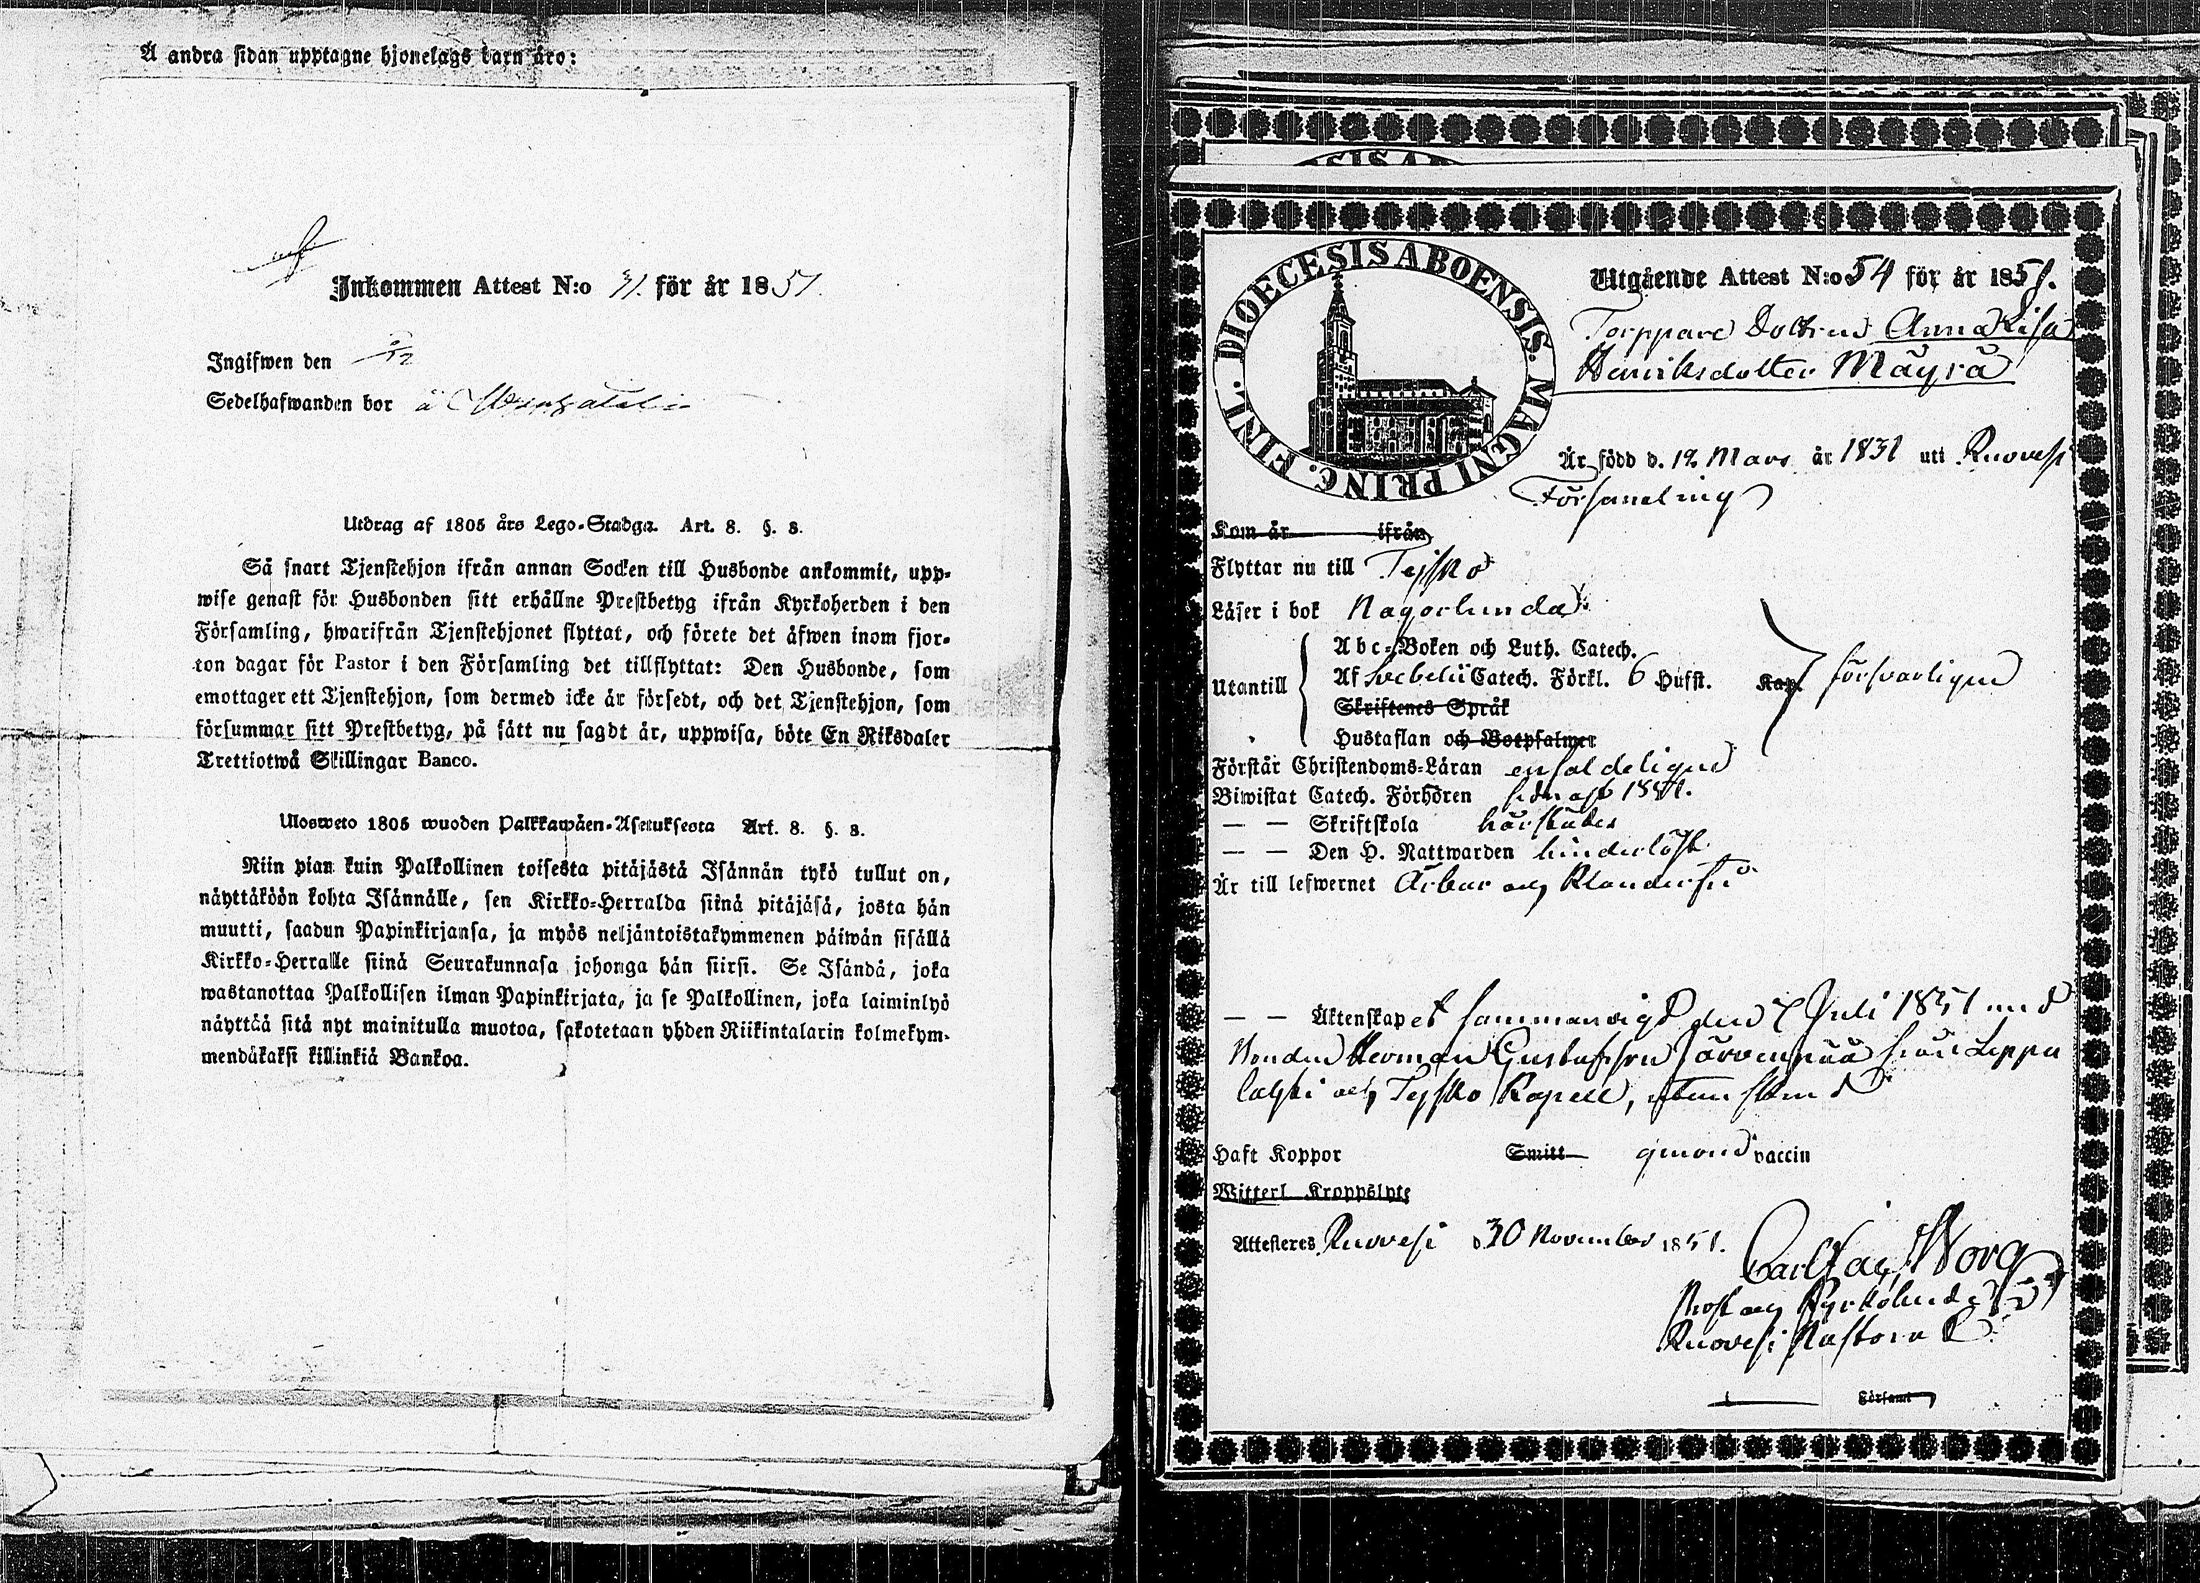 Å andra sidan upptagne hjonelags barn äro:
Inkommen Attest N:o 31. för år 1851.
Ingifwen den /12
Sedelhafwanden bor å
Utdrag af 1805 års Lego-Stadga. Art. 8. §. 8.
Så snart Tjenstehjon ifrån annan Socken till Husbonde ankommit, upp-
wise genast för Husbonden sitt erhållne Prestbetyg ifrån Kyrkoherden i den
Församling, hwarifrån Tjenstehjonet flyttat, och förete det äfwen inom fjor-
ton dagar för Pastor i den Församling det tillflyttat: Den Husbonde, som
emottager ett Tjenstehjon, som dermed icke är försedt, och det Tjenstehjon, som
försummar sitt Prestbetyg, på sätt nu sagdt är, uppwisa, böte En Riksdaler
Trettiotwå Skillingar Banco.
Ulosweto 1805 wuoden Palkkawäen-Asetuksesta Art. 8. §. 8.
Niin pian kuin Palkollinen toisesta pitäjästä Isännän tykö tullut on,
näyttäköön kohta Isännälle, sen Kirkko-Herralda siinä pitäjäsä, josta hän
muutti, saadun Papinkirjansa, ja myös neljäntoistakymmenen päiwän sisällä
Kirkko-Herralle siinä Seurakunnasa johonga hän siirsi. Se Isändä, joka
wastanottaa Palkollisen ilman Papinkirjata, ja se Palkollinen, joka laiminlyö
näyttää sitä nyt mainitulla muotoa, sakotetaan yhden Riikintalarin kolmekym-
mendäkaksi killinkiä Bankoa.
DIOECESIS ABOENSIS. MAGNI PRINC. FINL.
Utgående Attest N:o 54 för år 1851.
Torppare Dottren Anna Lisa
Henriksdotter Mäyrä
Är född d. 12 Mars år 1831 uti Ruovesi
Församling
Kom år ifrån
Flyttar nu till Teisko
Läser i bok Någorlunda
Abc-Boken och Luth. Catech.
Utantill Af Svebelii Catech. Förkl. 6 Hufst. Kap. försvarligen
Skriftenes Språk
Hustaflan och Botpsalmer
Förstår Christendoms-Läran enfaldeligen
Biwistat Catech. Förhören sednast 1851.
— — Skriftskola härstädes
— — Den H. Nattwarden hinderlöst
Är till lefwernet Ärbar och klanderfri
— — Äktenskapet sammanvigd den 7 Juli 1851 med
Bonden Herman Gustafsson Järvenpää från Leppä
lahti och Teisko Kapell, utan
Haft Koppor Smitt genom vaccin
Witterl. Kroppslyte
Attesteras Ruovesi d. 30 November 1851.
Carl Borg
Prost och Kyrkoherde i
Ruovesi Pastorat
Församl.